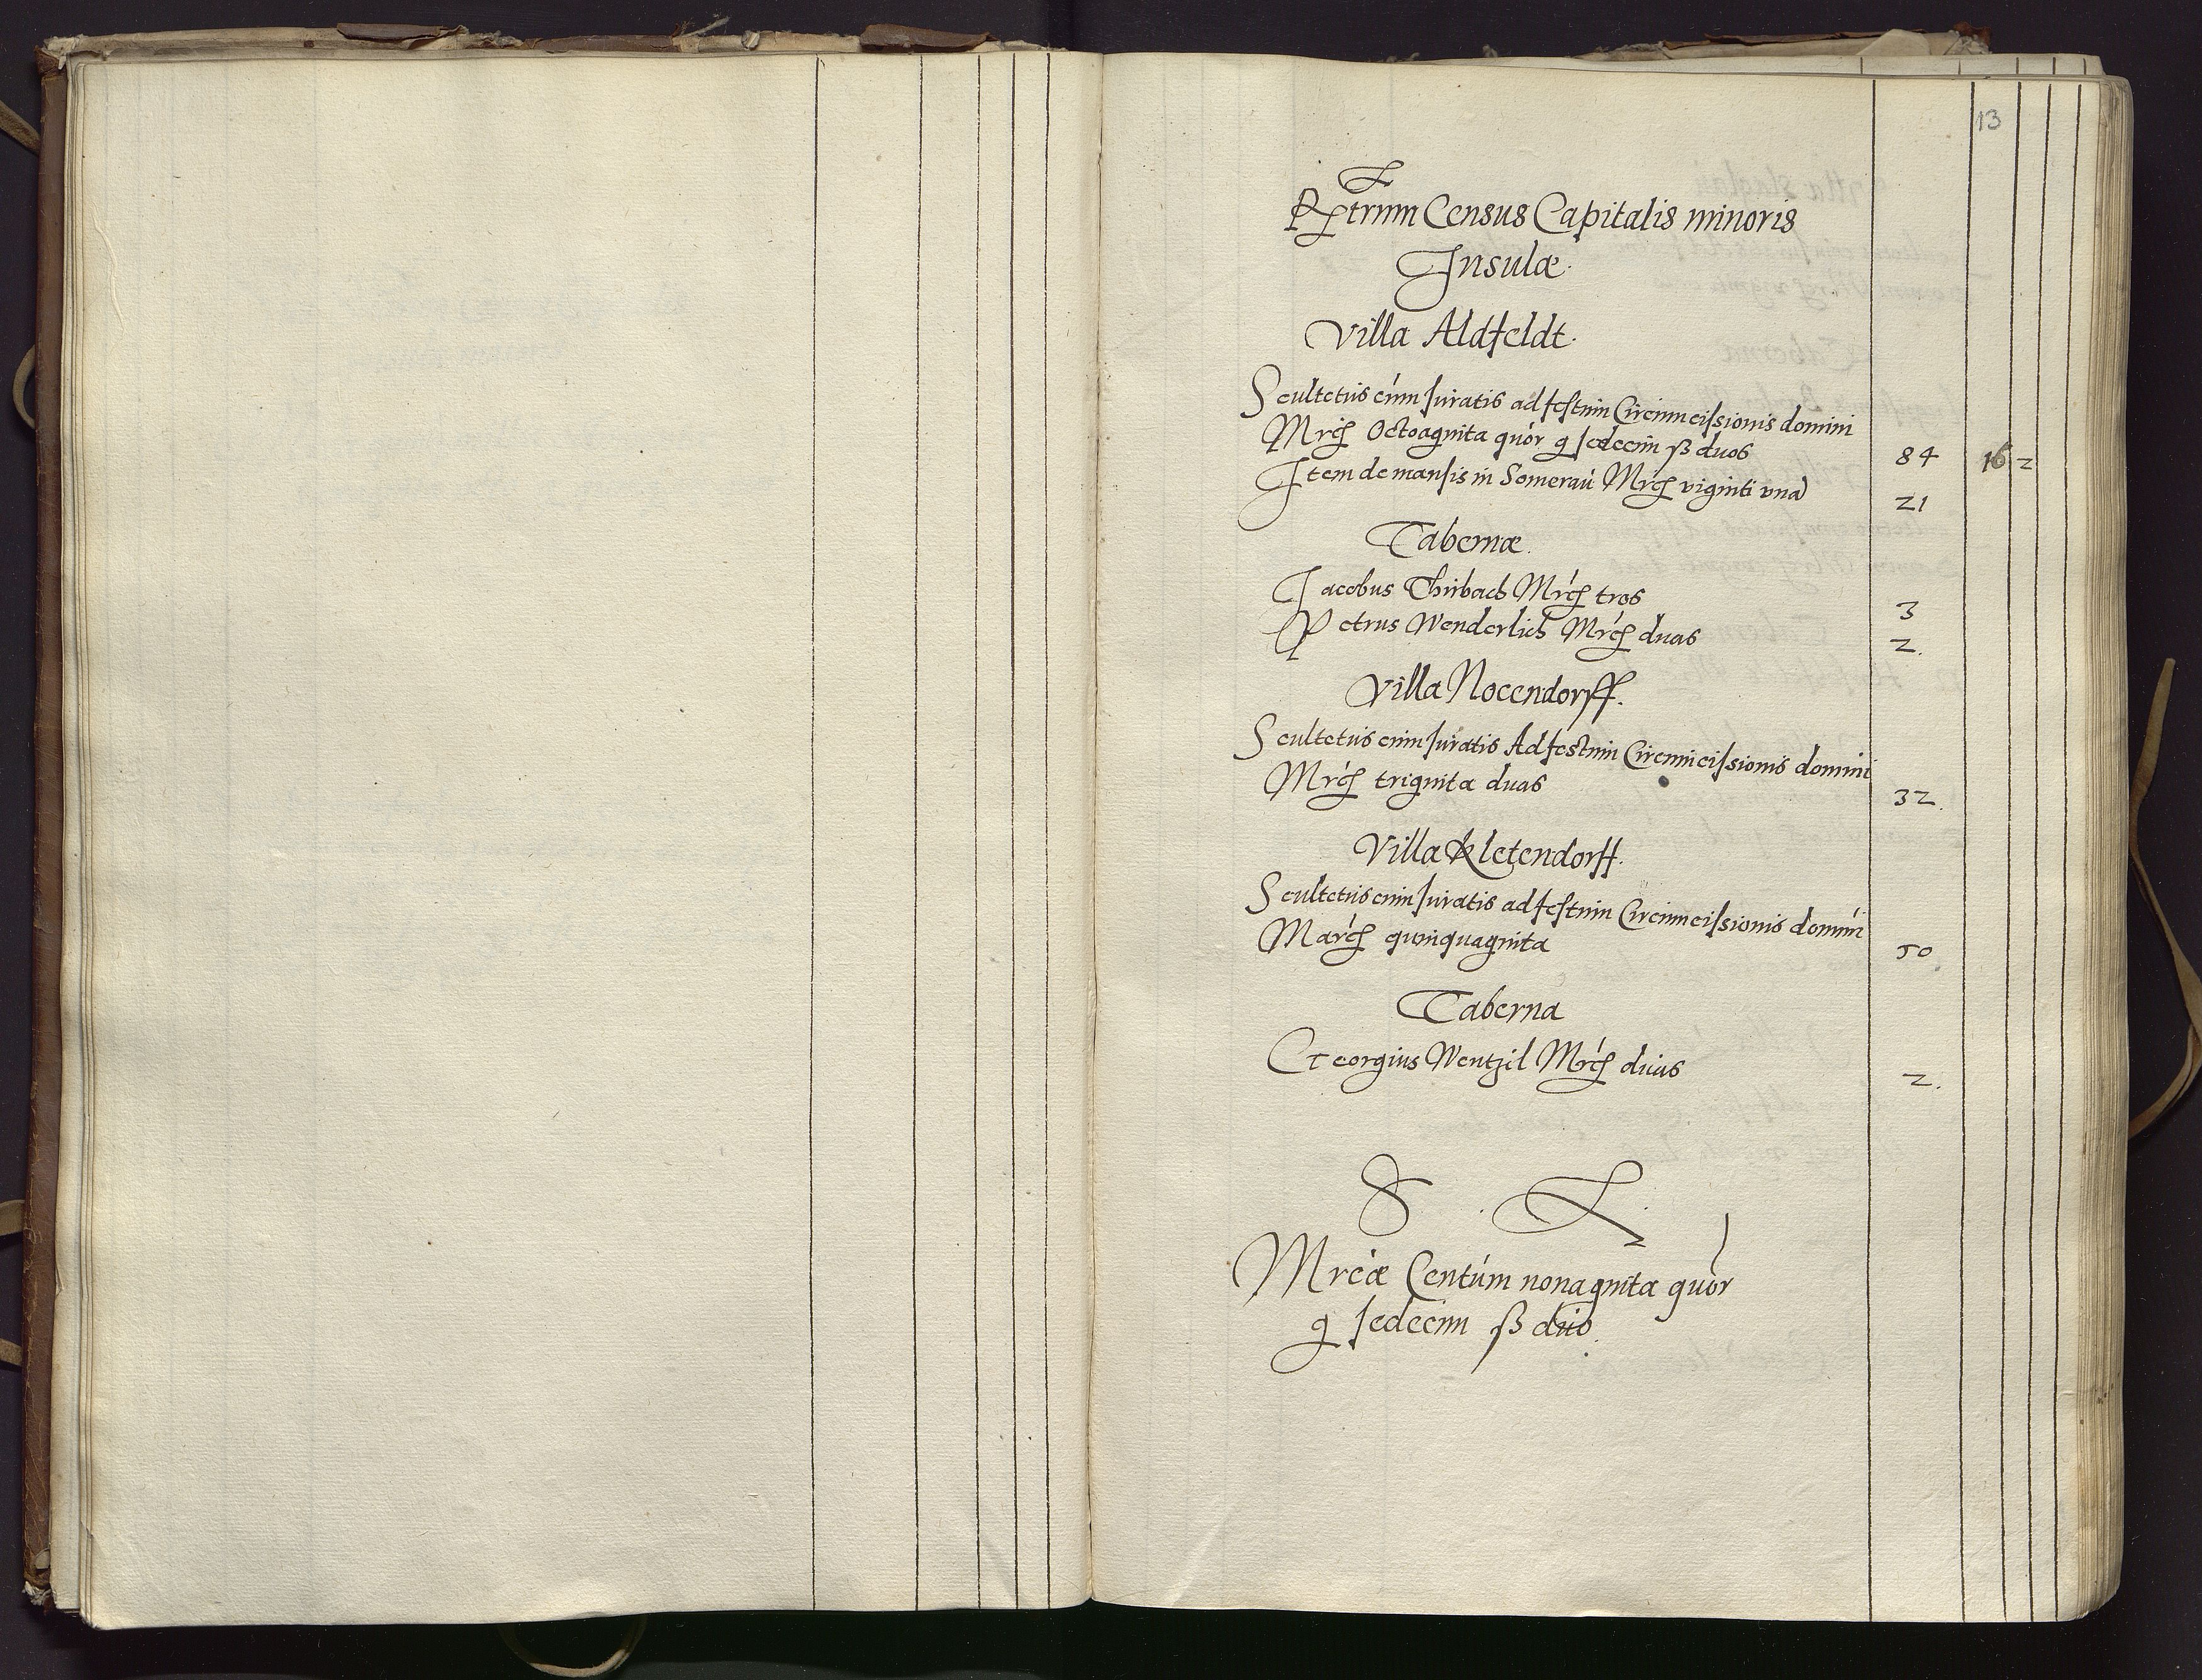 13
Rgtrum Census Capitalis minoris
Insulæ.
Villa Aldfeldt.
Scultetus cum Juratis ad festum Circumcissionis domini
Mrcs Octoaginta quor g sedecim ß duos 84 16 2
Item de mansis in Somerau Mrcs viginti vna 21
Tabernæ.
Jacobus Thirbach Mrcs tres 3
Petrus Wenderlich Mrcs duas 2.
Villa Nocendorff.
Scultetus cum Juratis Ad festum Circumcissionis domini
Mrcs triginta duas 32.
Villa Kletendorff.
Scultetus cum Juratis ad festum Circumcissionis domini
Marcs quinquaginta 50
Taberna
Georgius Wentzil Mrcs duas 2.
S
Mrcæ Centum nonaginta quor
g sedecim ß duo.